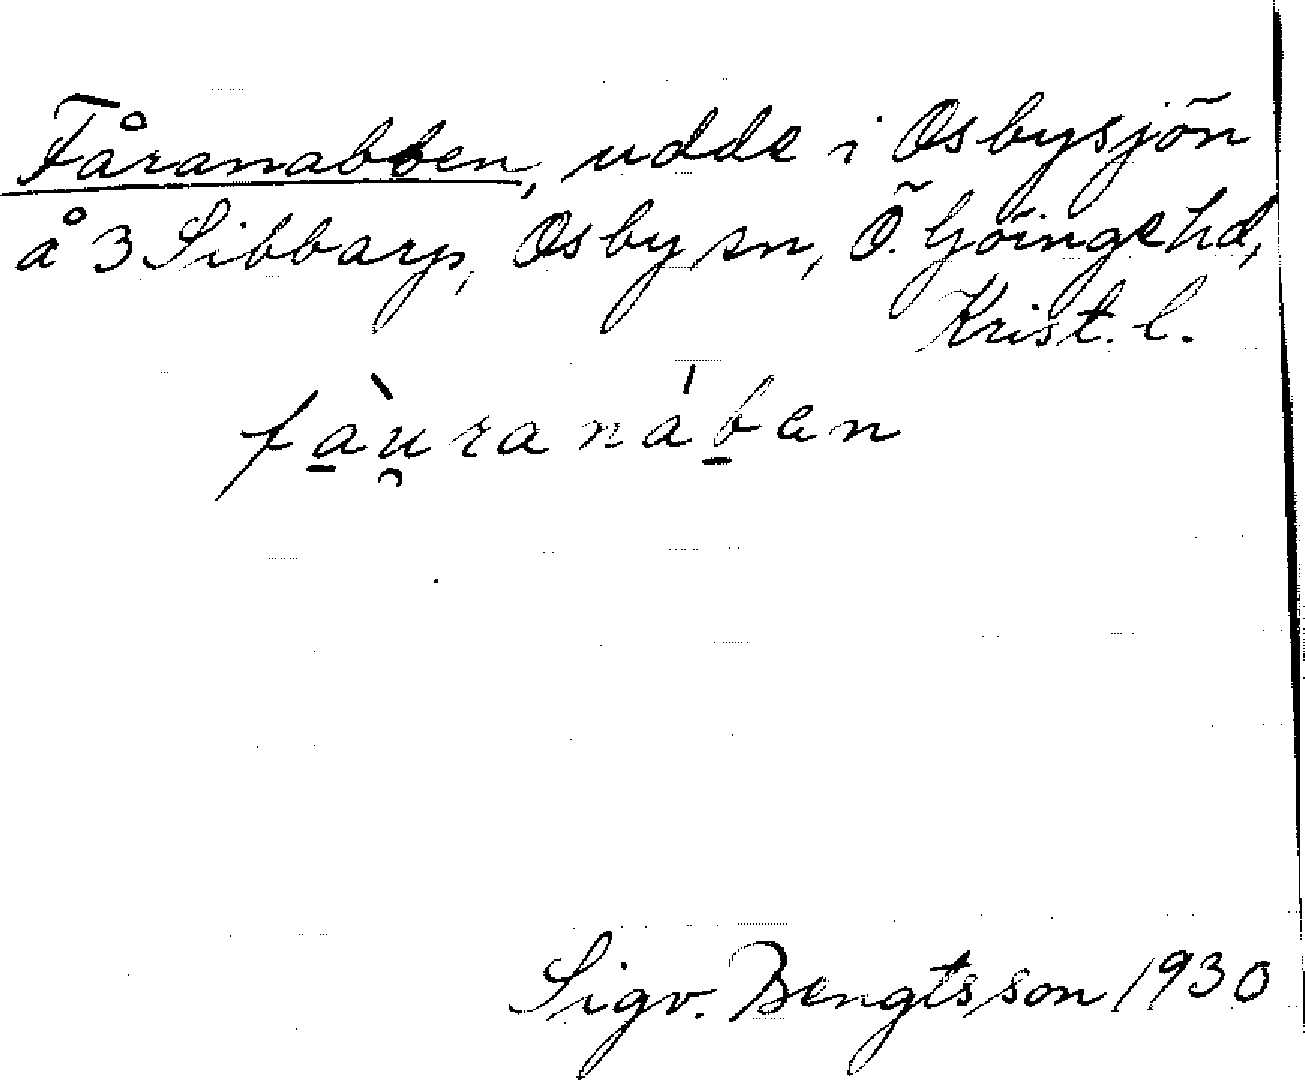 Fåranabben, udde i Osbysjön
å 3 Sibbarp, Osby sn, Ö. Göinge hd,
Krist. l.
fa̱ù̯ranáḇen
Sigv. Bengtsson 1930